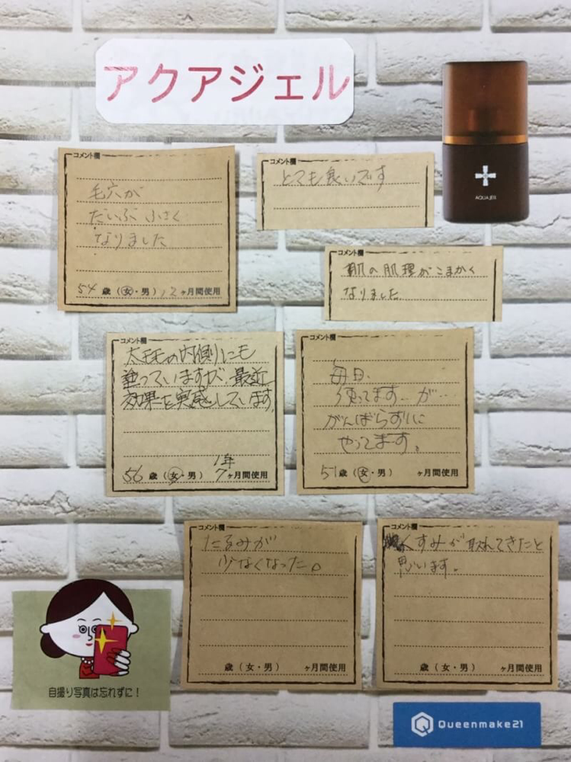 アクアジェル
AQUAJEL
コメント欄
毛穴が
だいぶ小さく
なりました
54 歳(女・男) 12ヶ月間使用
コメント欄
とても良いです
コメント欄
肌の肌理がこまかく
なりました
コメント欄
太ももの内側にも
塗っていますが、最近
効果を実感しています
1年
56 歳(女・男) 7ヶ月間使用
コメント欄
毎日、
使ってます…が…
がんばらずに
やってます。
51 歳(女・男) ヶ月間使用
コメント欄
たるみが
少なくなった。
歳(女・男) ヶ月間使用
コメント欄
くすみが取れてきたと
思います。
歳(女・男) ヶ月間使用
自撮り写真は忘れずに!
Queenmake21